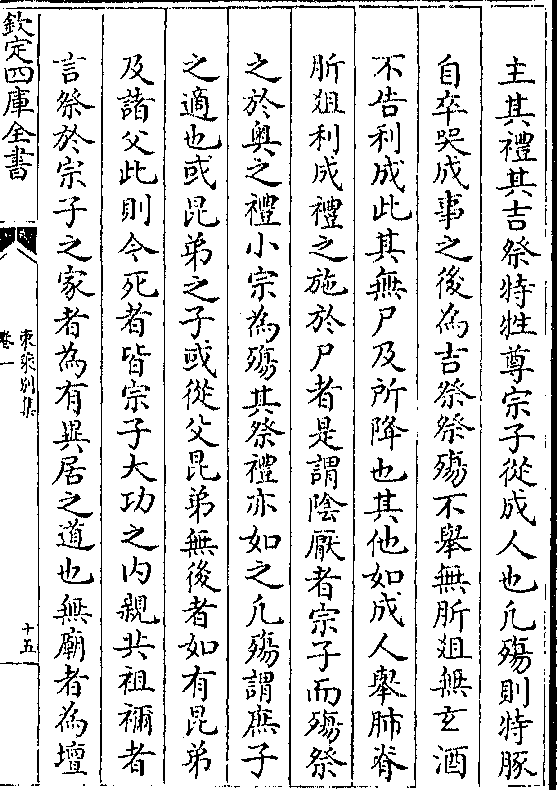 主其禮其吉祭特牲尊宗子從成人也凡殤則特豚
自卒哭成事之後為吉祭祭殤不舉無肵俎無玄酒
不告利成此其無尸及所降也其他如成人舉肺脊
肵俎利成禮之施於尸者是謂陰厭者宗子而殤祭
之於奥之禮小宗為殤其祭禮亦如之凡殤謂庶子
之適也或昆弟之子或從父昆弟無後者如有昆弟
及諸父此則今死者皆宗子大功之内親共祖禰者
言祭於宗子之家者為有異居之道也無廟者為壇
欽定四庫全書
東萊别集
卷一
十五